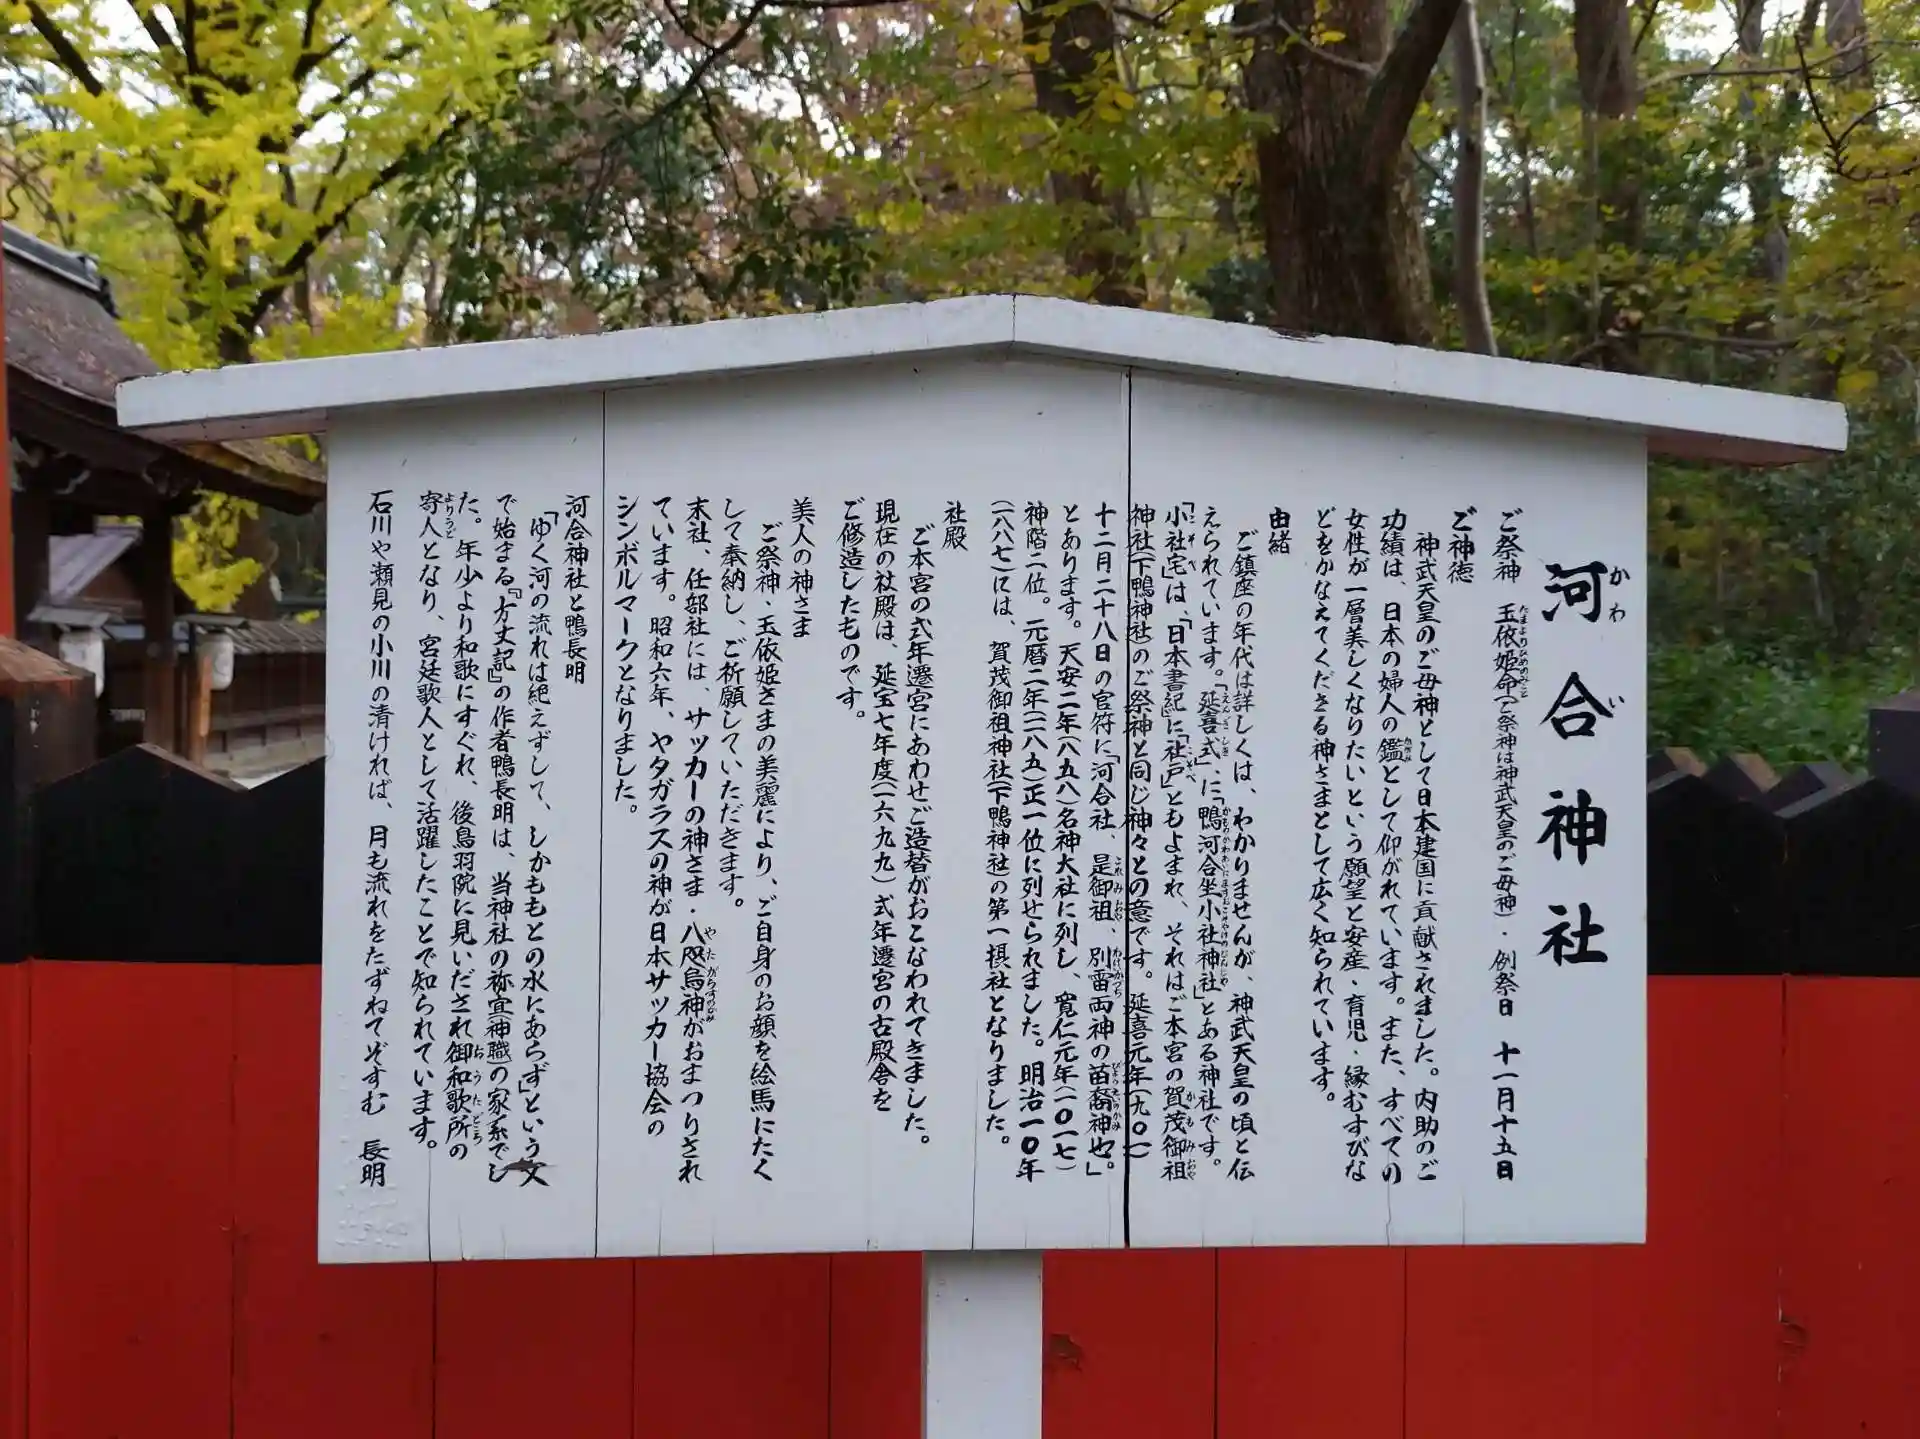 河合神社
ご祭神　玉依姫命(ご祭神は神武天皇のご母神)・例祭日　十一月十五日
ご神徳
神武天皇のご母神として日本建国に貢献されました。内助のご
功績は、日本の婦人の鑑として仰がれています。また、すべての
女性が一層美しくなりたいという願望と安産・育児・縁むすびな
どをかなえてくださる神さまとして広く知られています。
由緒
ご鎮座の年代は詳しくは、わかりませんが、神武天皇の頃と伝
えられています。「延喜式」に「鴨河合坐小社神社」とある神社です。
「小社宅」は、「日本書紀」に「社戸」ともよまれ、それはご本宮の賀茂御祖
神社(下鴨神社)のご祭神と同じ神々との意です。延喜元年(九〇一)
十二月二十八日の官符に「河合社、是御祖、別雷両神の苗裔神也」。
とあります。天安二年(八五八)名神大社に列し、寛仁元年(一〇一七)
神階二位。元暦二年(一一八五)正一位に列せられました。明治一〇年
(一八八七)には、賀茂御祖神社(下鴨神社)の第一摂社となりました。
社殿
ご本宮の式年遷宮にあわせご造替がおこなわれてきました。
現在の社殿は、延宝七年度(一六九九)式年遷宮の古殿舎を
ご修造したものです。
美人の神さま
ご祭神・玉依姫さまの美麗により、ご自身のお顔を絵馬にたく
して奉納し、ご祈願していただきます。
末社、任部社には、サッカーの神さま・八咫烏神がおまつりされ
ています。昭和六年、ヤタガラスの神が日本サッカー協会の
シンボルマークとなりました。
河合神社と鴨長明
「ゆく河の流れは絶えずして、しかももとの水にあらず」という文
で始まる『方丈記』の作者鴨長明は、当神社の祢宜(神職)の家系でし
た。年少より和歌にすぐれ、後鳥羽院に見いだされ御和歌所の
寄人となり、宮廷歌人として活躍したことで知られています。
石川や瀬見の小川の清ければ、月も流れをたずねてぞすむ　長明